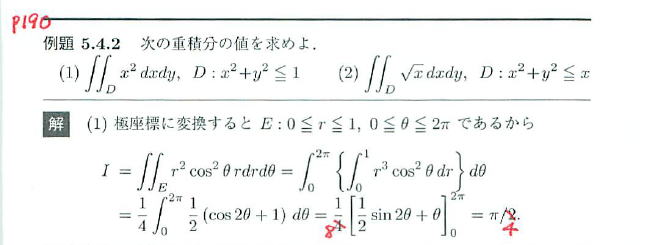 p190
例題 5.4.2 次の重積分の値を求めよ.
(1) ∬_D x² dxdy, D : x²+y² ≦ 1 (2) ∬_D √x dxdy, D : x²+y² ≦ x
解 (1) 極座標に変換すると E : 0 ≦ r ≦ 1, 0 ≦ θ ≦ 2π であるから
I = ∬_E r² cos² θ rdrdθ = ∫_0^{2π} { ∫_0^1 r³ cos² θ dr } dθ
= 1/4 ∫_0^{2π} 1/2 (cos 2θ + 1) dθ = 1/4 [ 1/2 sin 2θ + θ ]_0^{2π} = π/2.
8 4